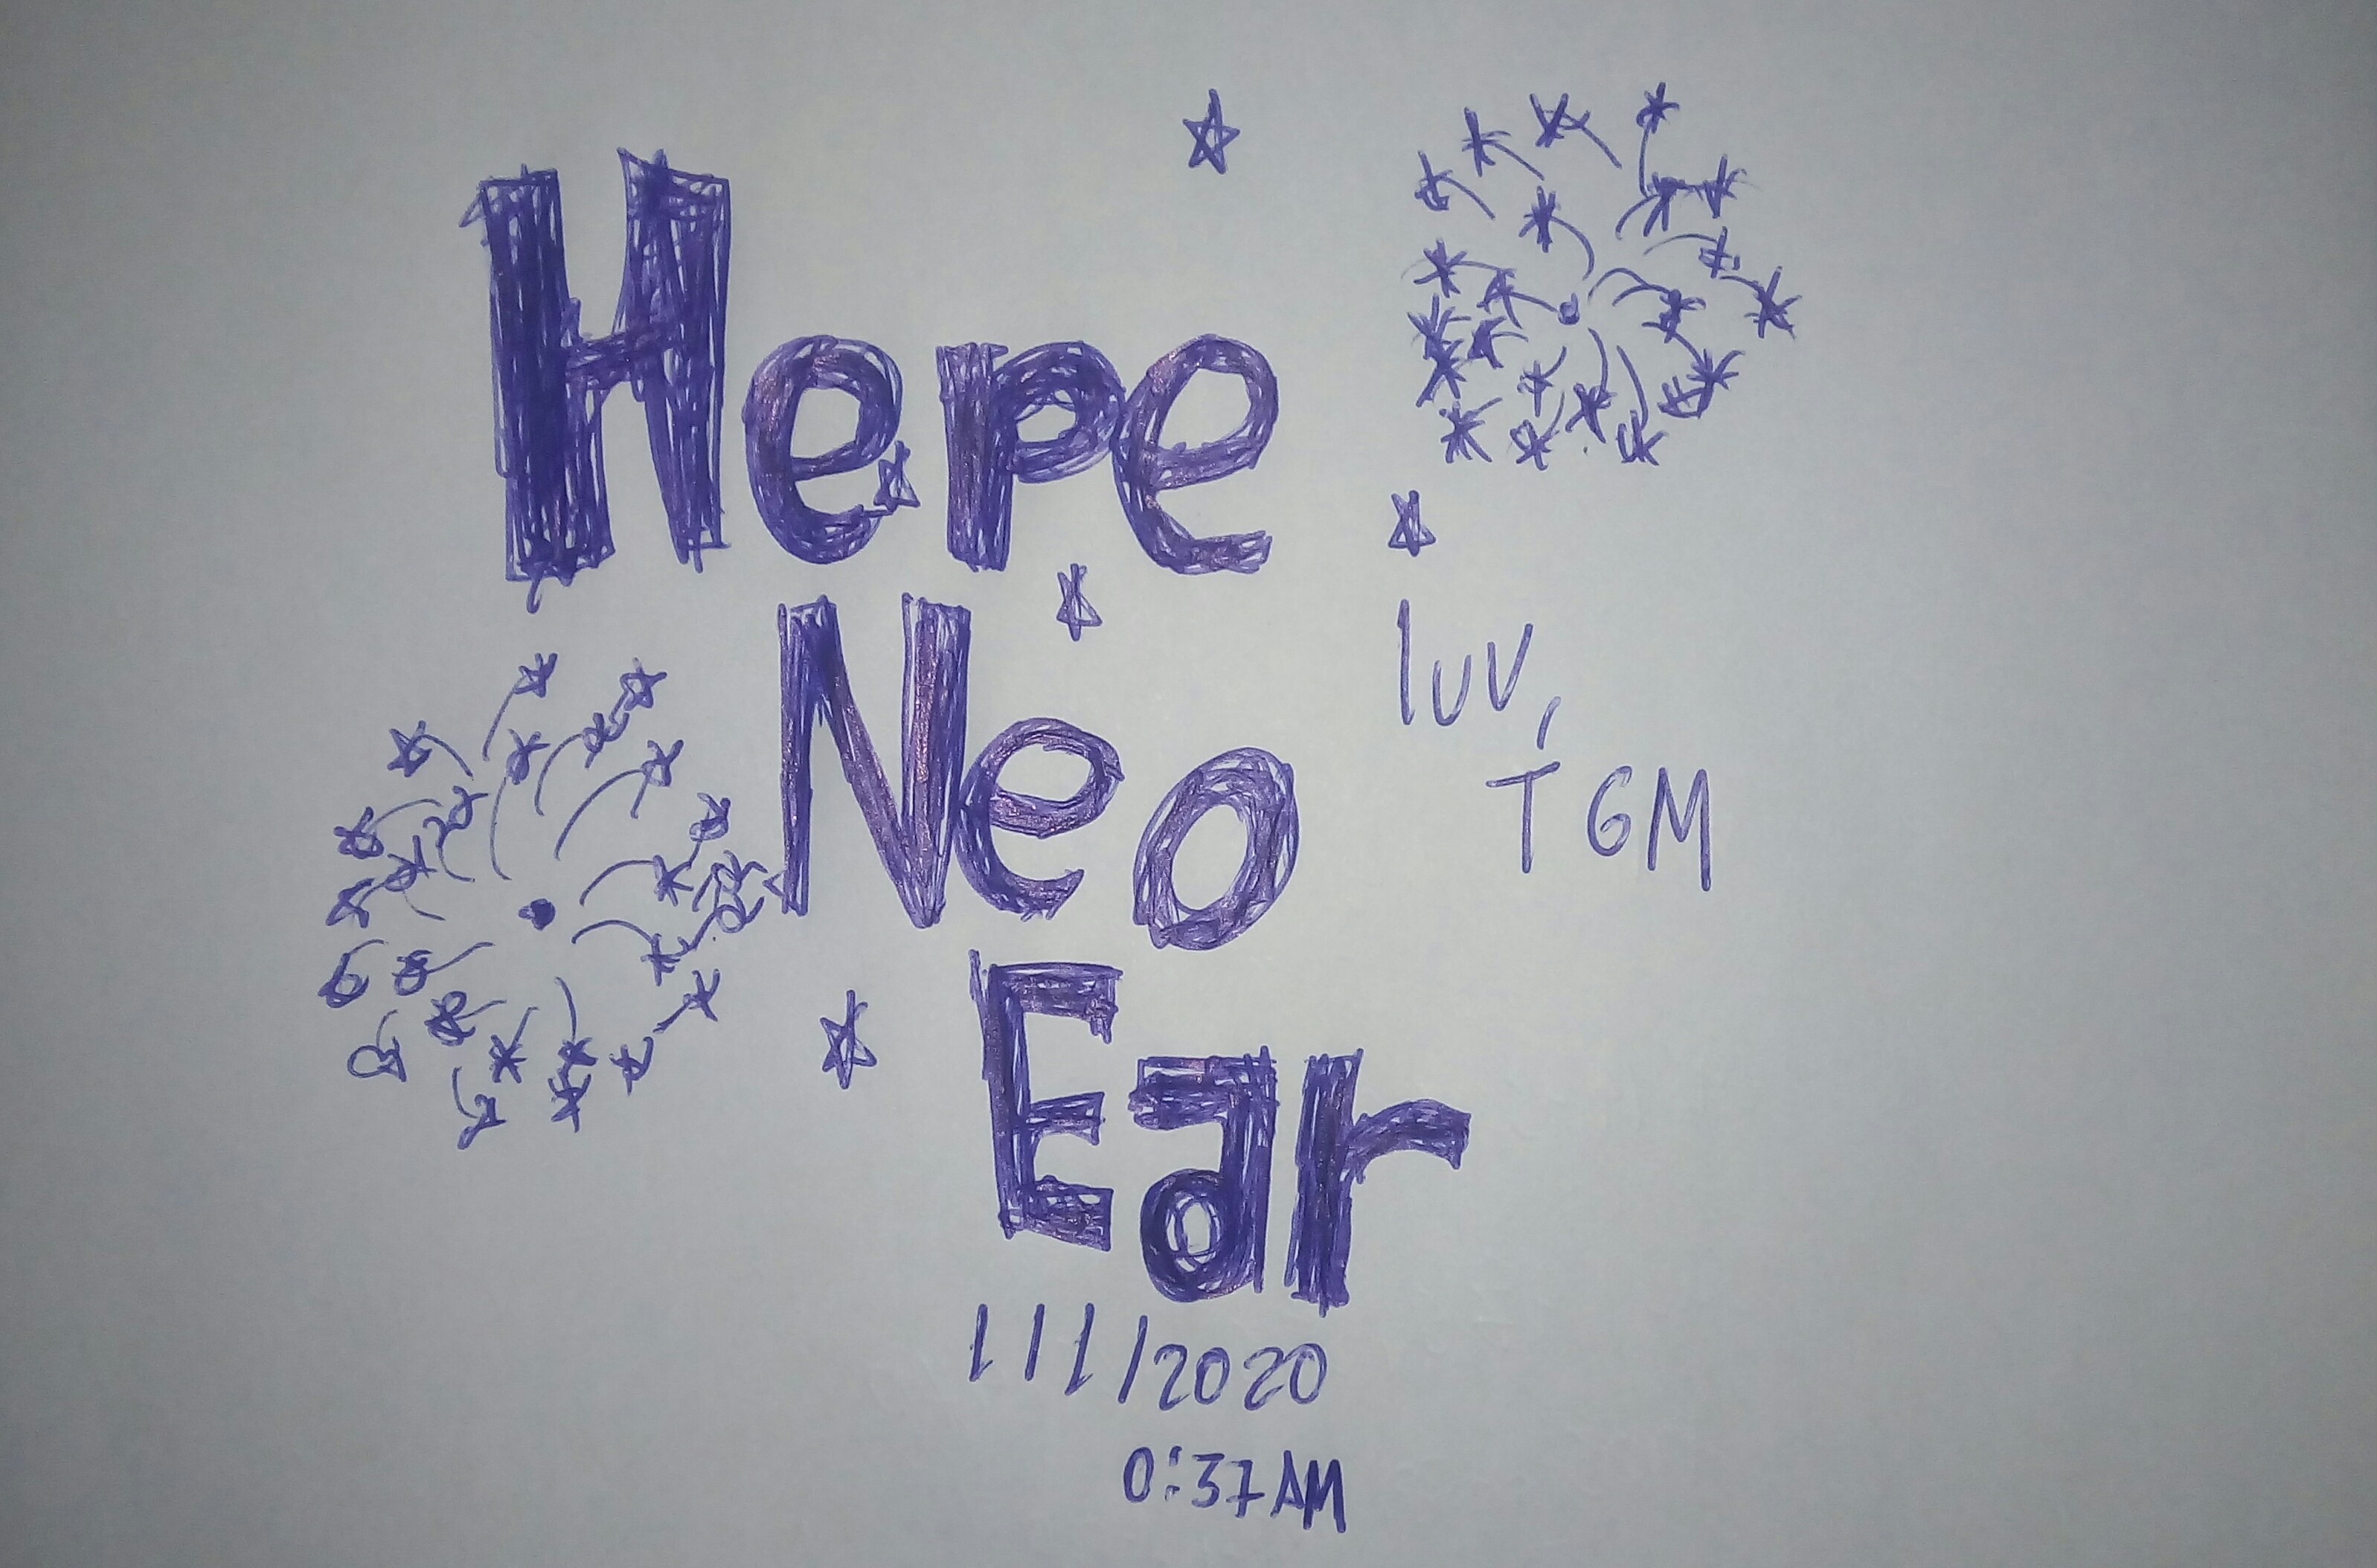 Hepe
Neo
Ear
luv,
TGM
1/1/2020
0:37AM